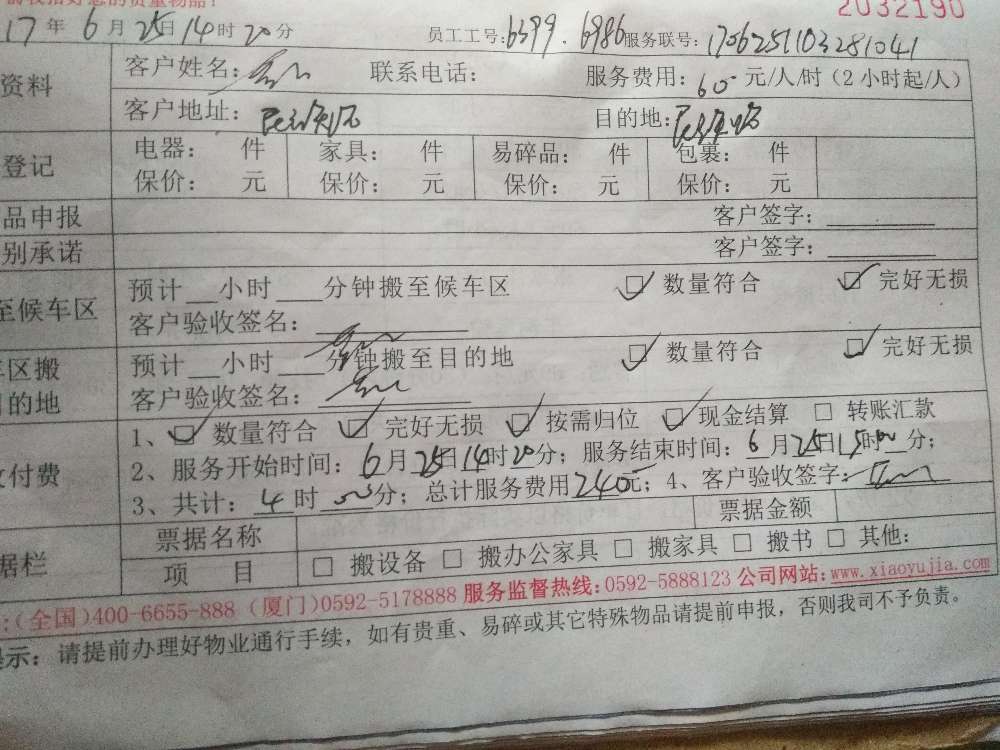 2032190
17年6月25日14时20分 员工工号:6399.6986 服务联号:1706251103281041
资料 客户姓名: 联系电话: 服务费用:60元/人/时(2小时起/人)
客户地址: 目的地:
登记 电器: 件 家具: 件 易碎品: 件 包裹: 件
保价: 元 保价: 元 保价: 元 保价: 元
品申报 客户签字:
别承诺 客户签字:
至候车区 预计__小时___分钟搬至候车区 数量符合 完好无损
客户验收签名:
区搬 预计__小时___分钟搬至目的地 数量符合 完好无损
的地 客户验收签名:
付费 1、数量符合 完好无损 按需归位 现金结算 转账汇款
2、服务开始时间:6月25日14时20分;服务结束时间:6月25日15时00分;
3、共计:4时分;总计服务费用240元;4、客户验收签字:
据栏 票据名称 票据金额
项目 搬设备 搬办公家具 搬家具 搬书 其他:
:(全国)400-6655-888(厦门)0592-5178888 服务监督热线:0592-5888123 公司网站:www.xiaoyujia.com
提示:请提前办理好物业通行手续,如有贵重、易碎或其它特殊物品请提前申报,否则我司不予负责。